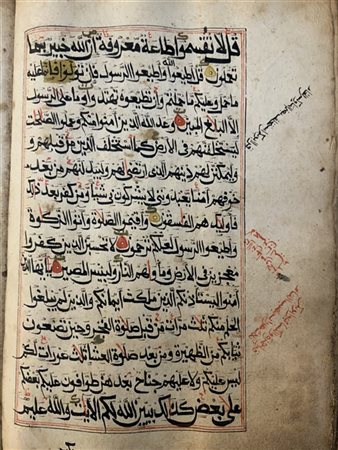 قل لا تقسموا طاعة معروفة ان الله خبير بما
تعملون قل اطيعوا الله واطيعوا الرسول فان تولوا فانما عليه
ما حمل وعليكم ما حملتم وان تطيعوه تهتدوا وما على الرسول
الا البلاغ المبين وعد الله الذين امنوا منكم وعملوا الصالحات
ليستخلفنهم في الارض كما استخلف الذين من قبلهم
وليمكنن لهم دينهم الذي ارتضى لهم وليبدلنهم من بعد
خوفهم امنا يعبدونني لا يشركون بي شيئا ومن كفر بعد ذلك
فاوليك هم الفاسقون واقيموا الصلاة واتوا الزكوة
واطيعوا الرسول لعلكم ترحمون لا تحسبن الذين كفروا
معجزين في الارض وماويهم النار ولبيس المصير يايها الذين
امنوا ليستاذنكم الذين ملكت ايمانكم والذين لم يبلغوا
الحلم منكم ثلث مرات من قبل صلوة الفجر وحين تضعون
ثيابكم من الظهيرة ومن بعد صلوة العشا ثلث عورات لكم
ليس عليكم ولا عليهم جناح بعدهن طوافون عليكم بعضكم
على بعض كذلك يبين الله لكم الايت والله عليم